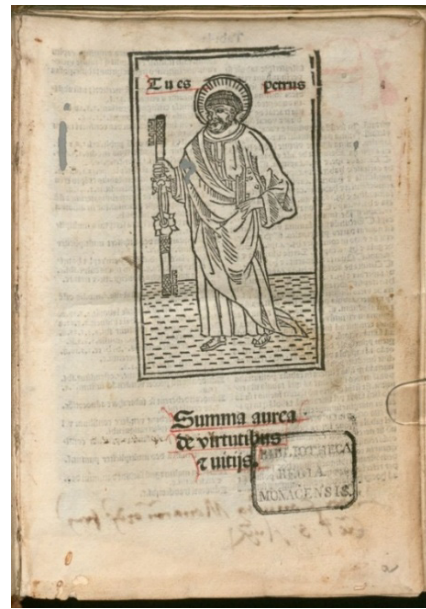 Tu es petrus
Summa aurea
de virtutibus
⁊ uitijs.
BIBLIOTHECA
REGIA
MONACENSIS.